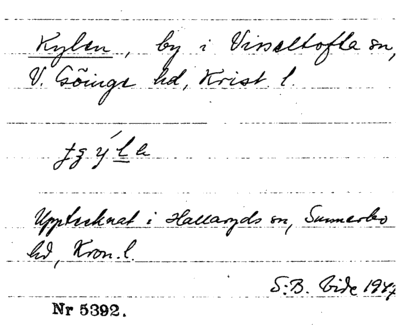 Kylen, by i Visseltofta sn,
V. Göinge hd, Krist l.
Upptecknat i Hallaryds sn, Sunnerbo
hd, Kron. l.
S. B. Vide
Nr 5392.